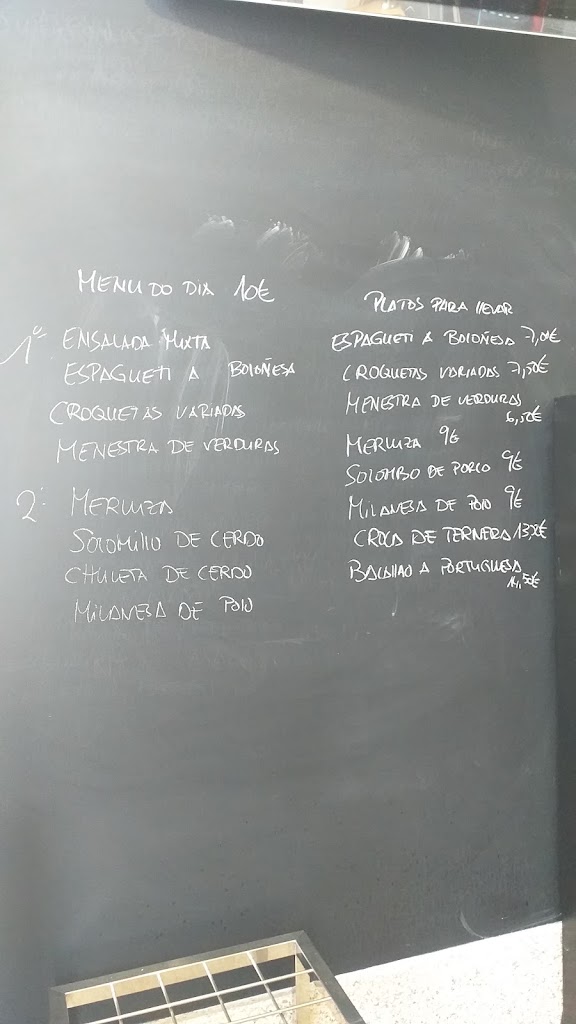 MENU DO DIA 10€
1º ENSALADA MIXTA
ESPAGUETI A BOLOÑESA
CROQUETAS VARIADAS
MENESTRA DE VERDURAS
2º MERLUZA
SOLOMILLO DE CERDO
CHULETA DE CERDO
MILANESA DE POLLO
PLATOS PARA LLEVAR
ESPAGUETI A BOLOÑESA 7,00€
CROQUETAS VARIADAS 7,50€
MENESTRA DE VERDURAS
6,50€
MERLUZA 9€
SOLOMBO DE PORCO 9€
MILANESA DE POLO 9€
DE TERNERA
BACALLAO A PORTUGUESA
14,50€